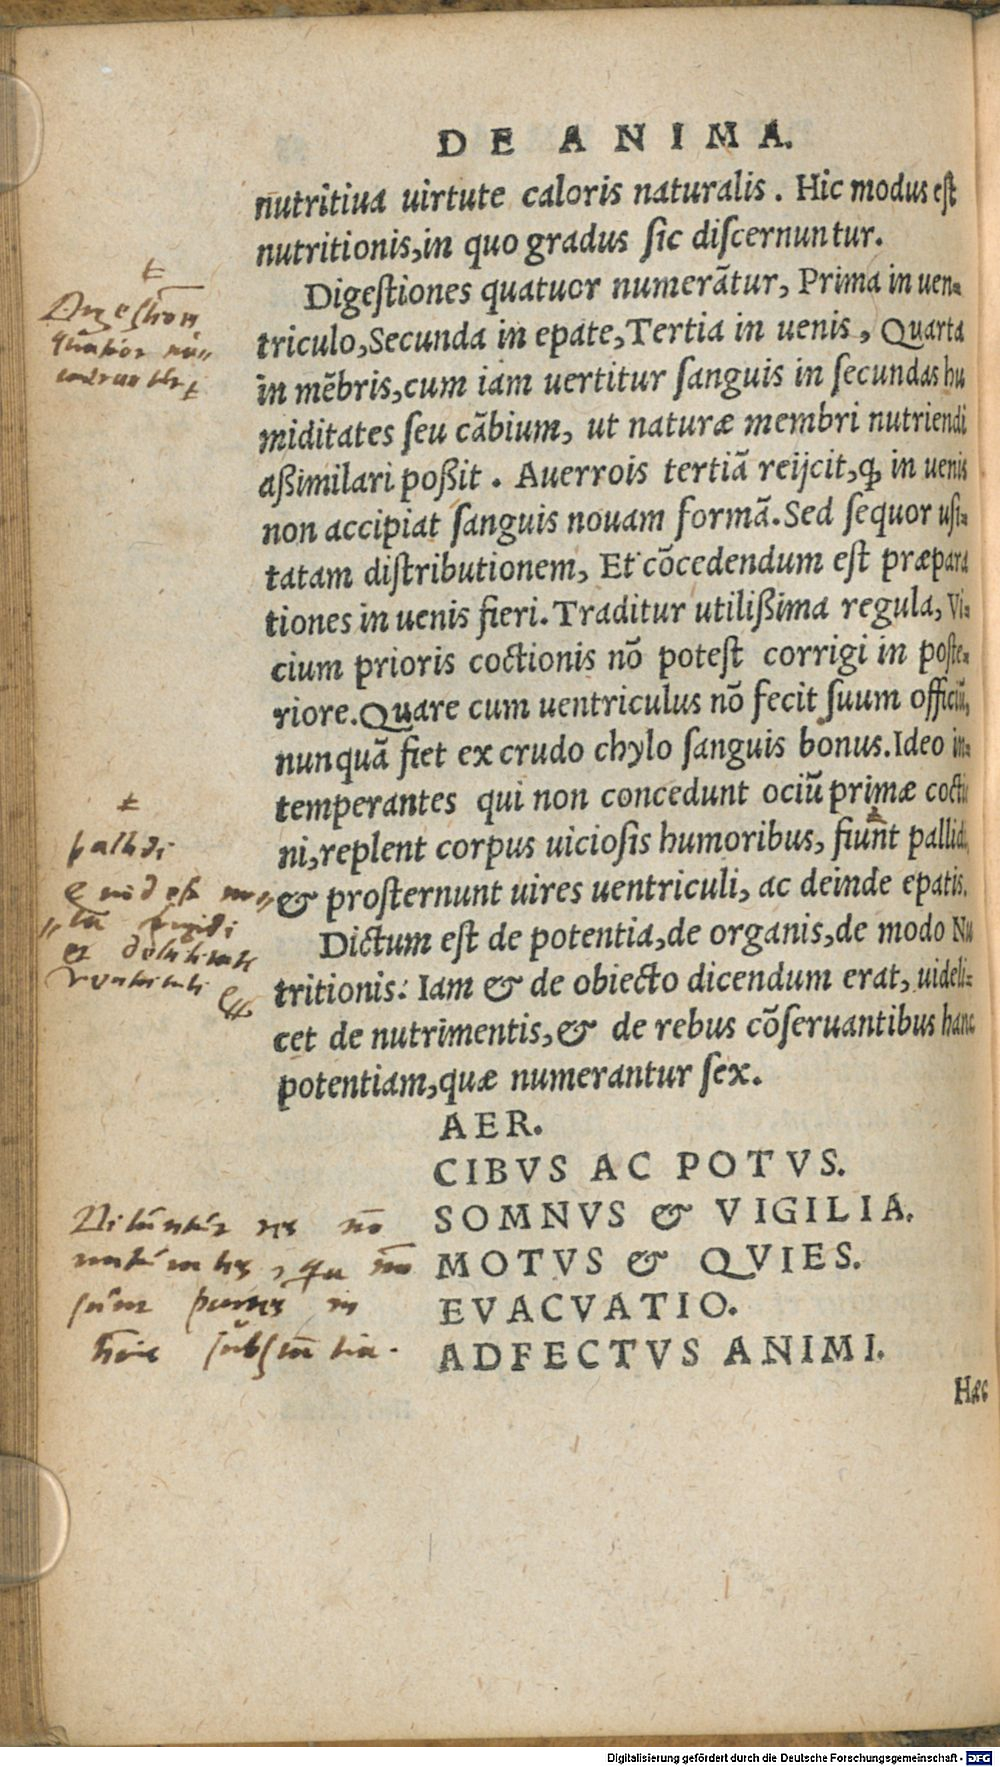 DE ANIMA.
nutritiua uirtute caloris naturalis. Hic modus eſt
nutritionis, in quo gradus ſic diſcernuntur.
Digeſtiones quatuor numerãtur, Prima in uen-
triculo, Secunda in epate, Tertia in uenis, Quarta
in mẽbris, cum iam uertitur ſanguis in ſecundas hu
miditates ſeu cãbium, ut naturæ membri nutriendi
aßimilari poßit. Auerrois tertiã reijcit, ꝙ in uenis
non accipiat ſanguis nouam formã. Sed ſequor uſi-
tatam diſtributionem, Et cõcedendum eſt præpara
tiones in uenis fieri. Traditur utilißima regula, Vi-
cium prioris coctionis nõ poteſt corrigi in poſte-
riore. Quare cum uentriculus nõ fecit ſuum officiũ,
nunquã fiet ex crudo chylo ſanguis bonus. Ideo in-
temperantes qui non concedunt ociũ primæ coctio
ni, replent corpus uicioſis humoribus, fiunt pallidi,
& proſternunt uires uentriculi, ac deinde epatis.
Dictum eſt de potentia, de organis, de modo Nu
tritionis: Iam & de obiecto dicendum erat, uideli-
cet de nutrimentis, & de rebus cõſeruantibus hanc
potentiam, quæ numerantur ſex.
AER.
CIBVS AC POTVS.
SOMNVS & VIGILIA.
MOTVS & QVIES.
EVACVATIO.
ADFECTVS ANIMI.
Hæc
pallidi
res nõ
Digitalisierung gefördert durch die Deutsche Forschungsgemeinschaft - DFG